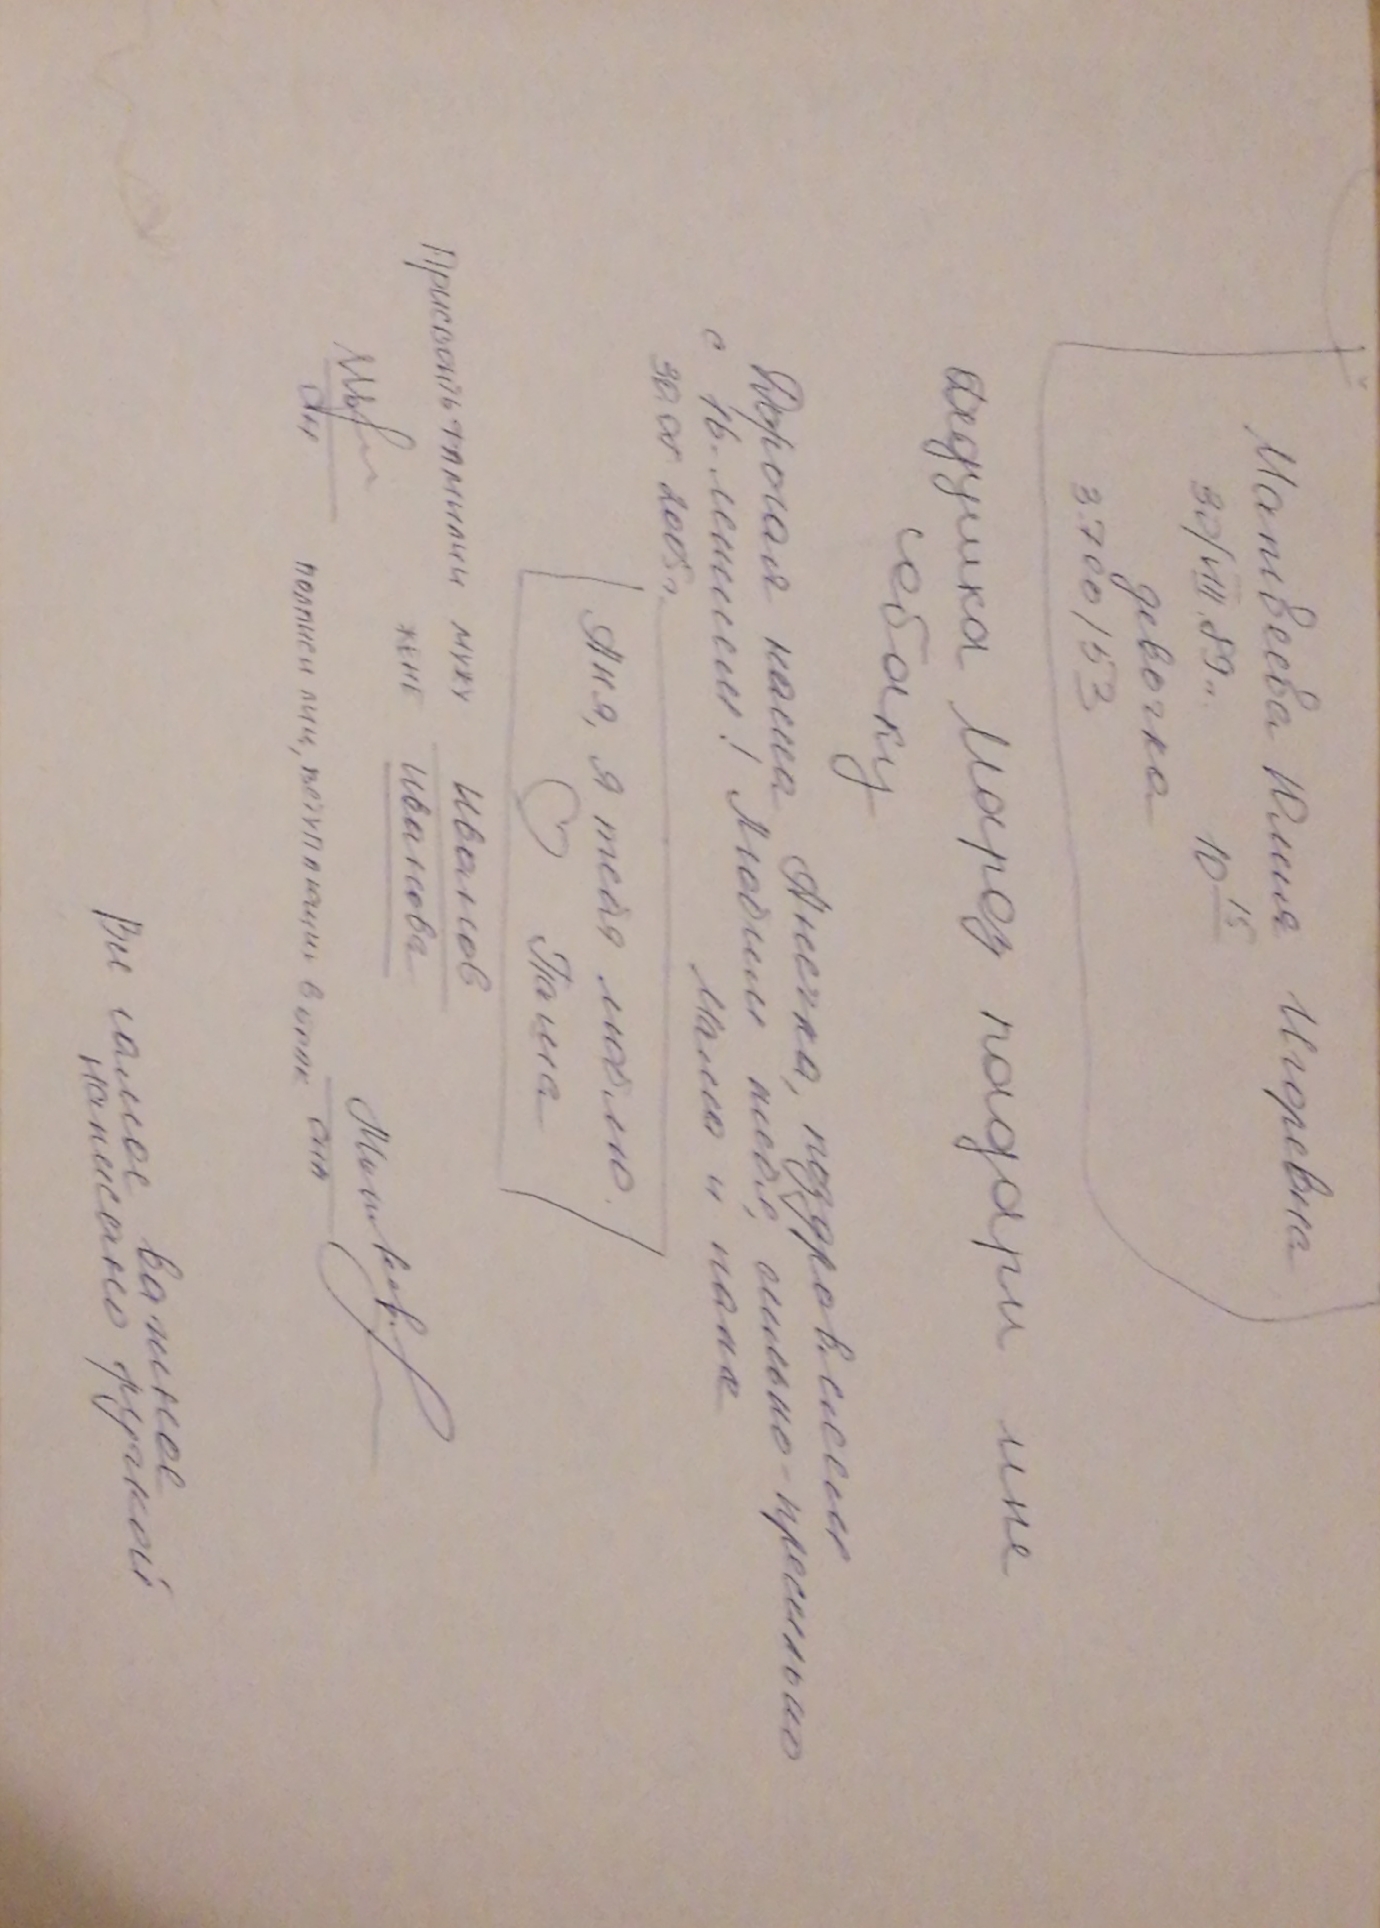 Матвеева Юлия Игоревна
30/VIII.89г. 10 15
девочка
3700/53
Дедушка Мороз подари мне
собаку
Дорогая наша Анечка, поздравляем
с 16-летием! Любим тебя, сильно-пресильно
Мама и папа
30.01 2005г.
Аня, я тебя люблю.
Паша
Присвоить фамилии мужу Иванов
жене Иванова
он она
подписи лиц, вступающих в брак
Все самое важное
написано ручкой